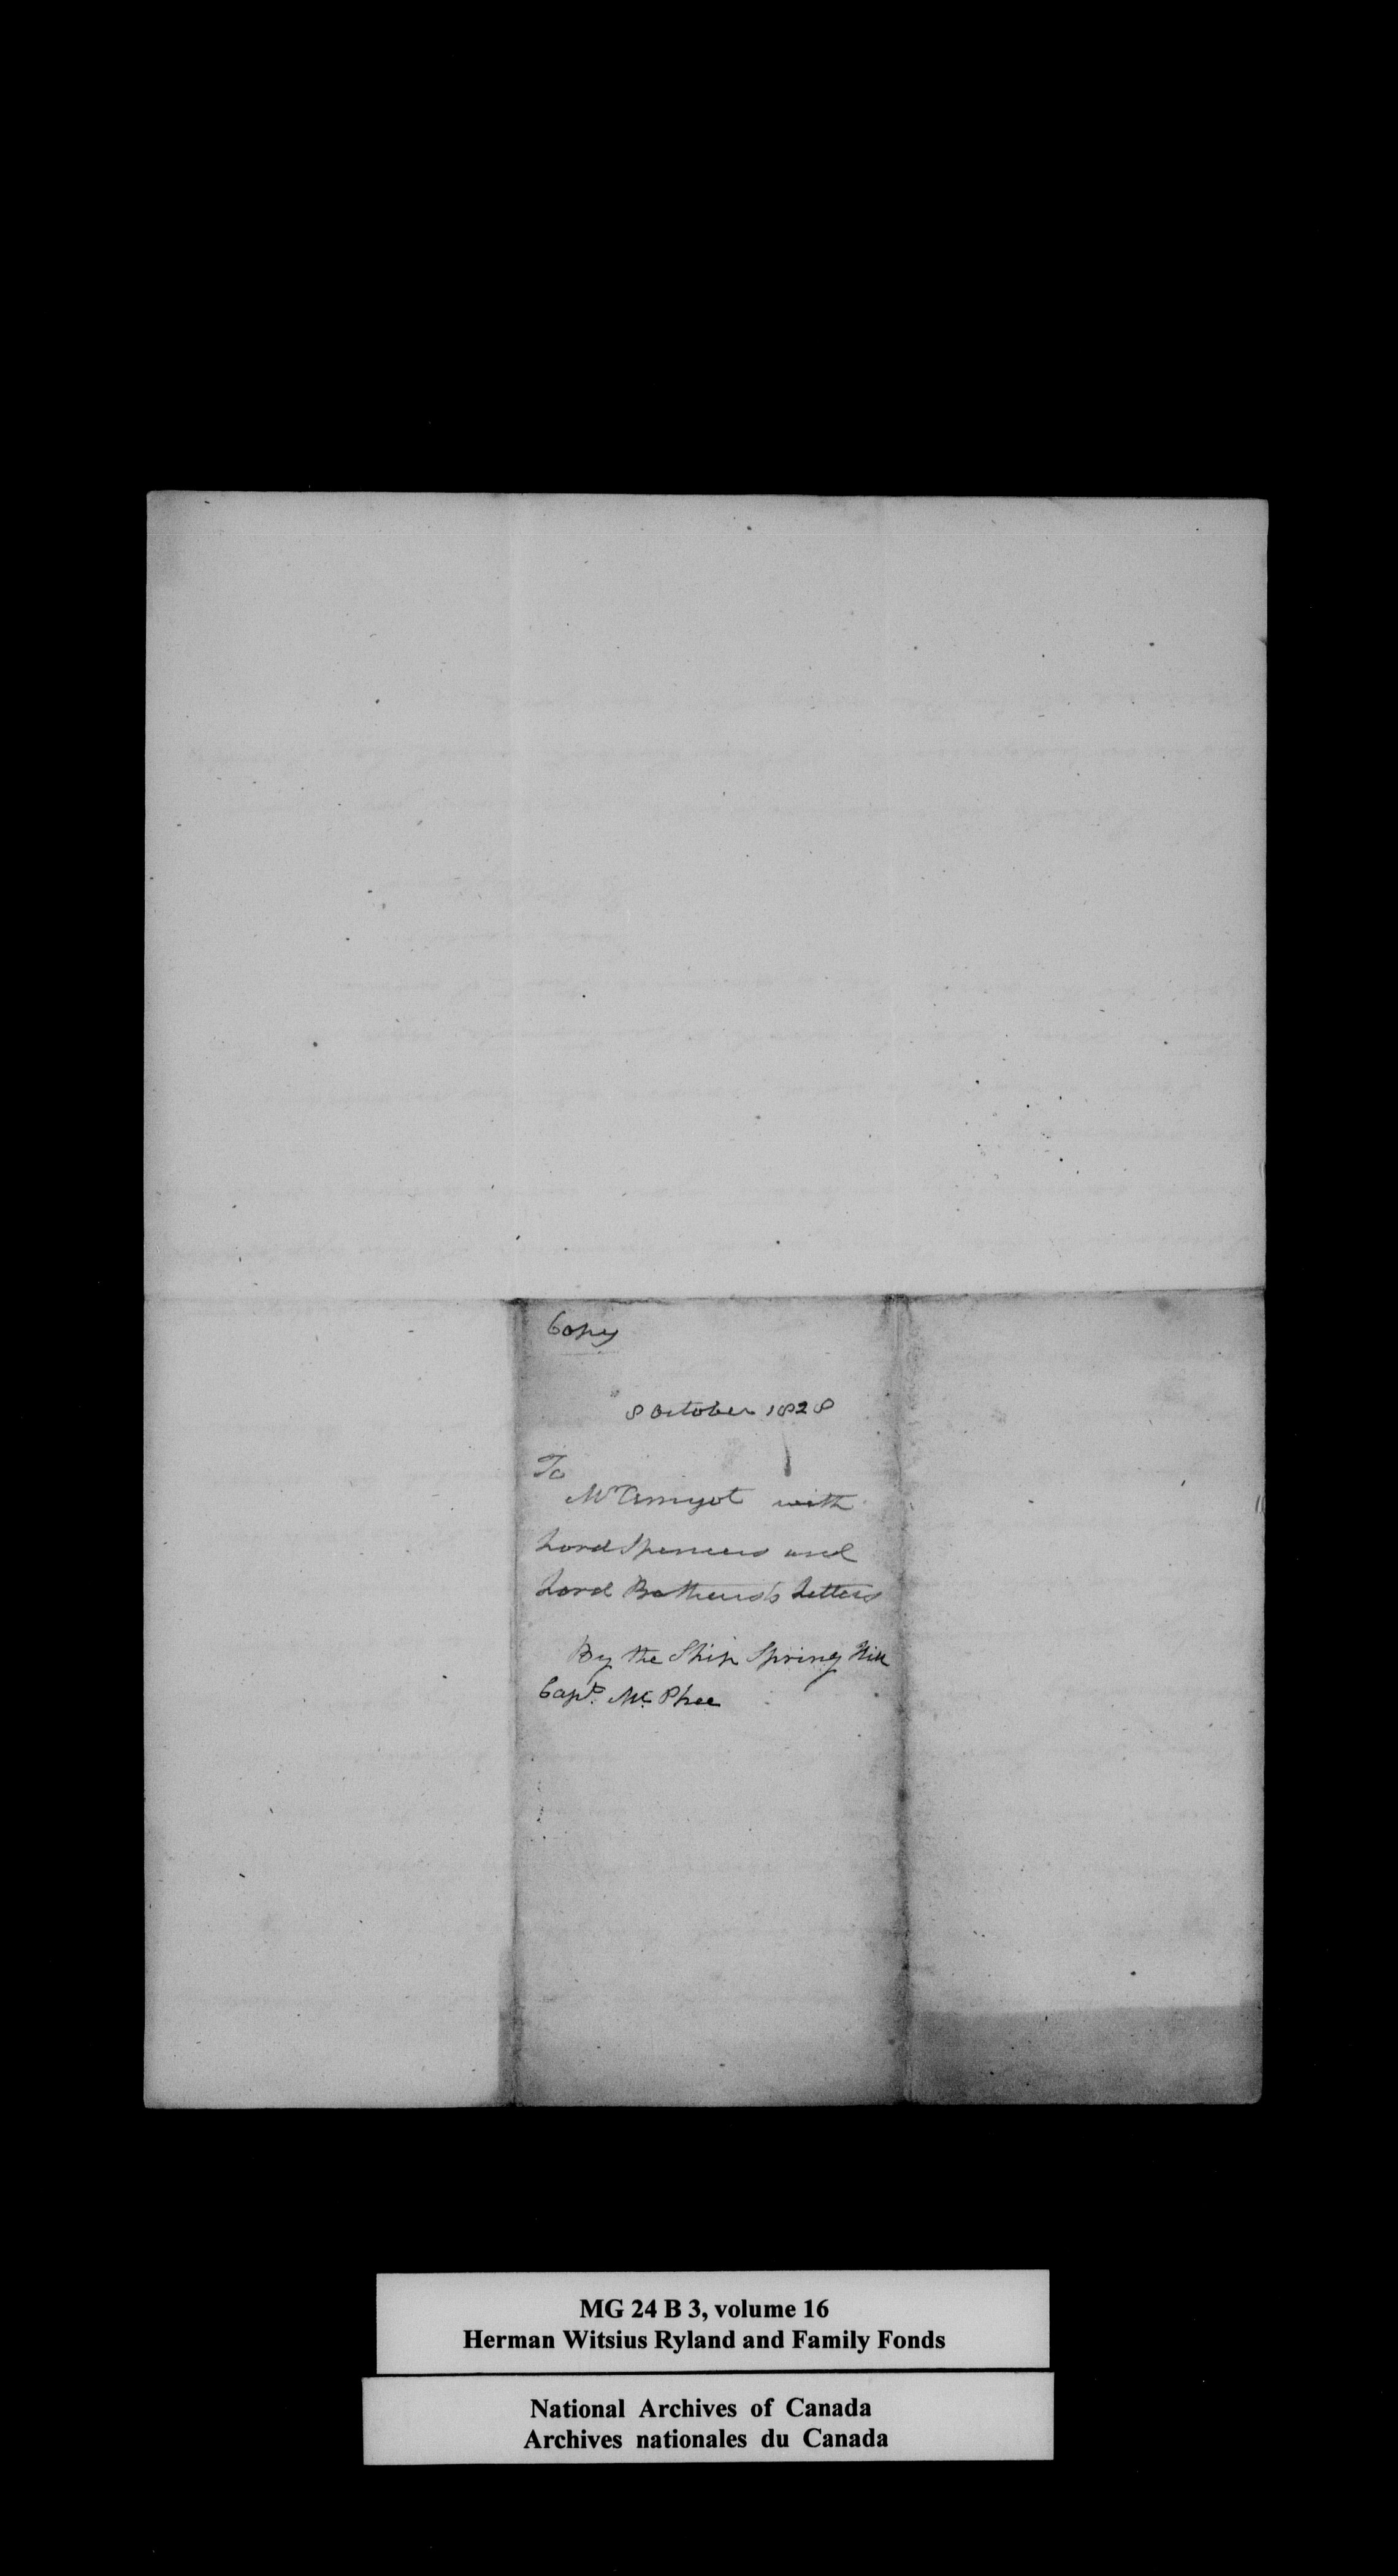 Copy
8 October 1828
To
Mr Amyot with
Lord Spencers and
Lord Bathursts Letters
By the Ship Spring Hill
Capt. Mc Phee
MG 24 B 3, volume 16
Herman Witsius Ryland and Family Fonds
National Archives of Canada
Archives nationales du Canada